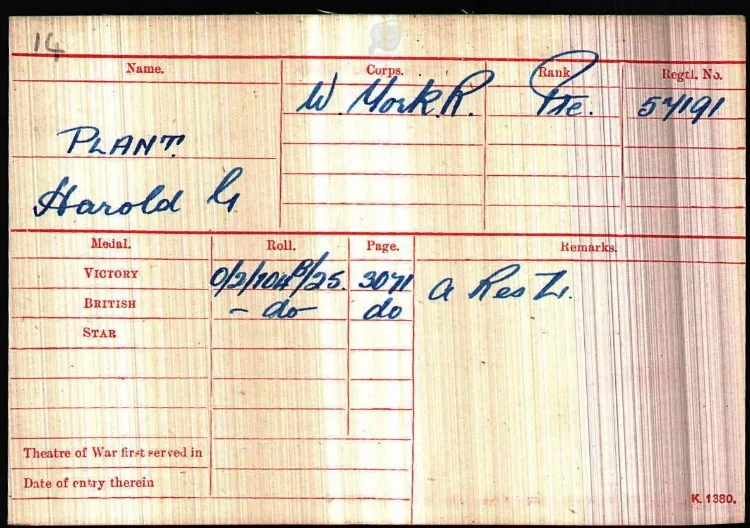 14
Name. Corps. Rank Regtl. No.
W. York. R. Pte. 57191
PLANT.
Harold G
Medal. Roll. Page. Remarks.
VICTORY 0/2/104B/25. 3071 A Res Z.
BRITISH - do - do
STAR
Theatre of War first served in
Date of entry therein
K. 1380.